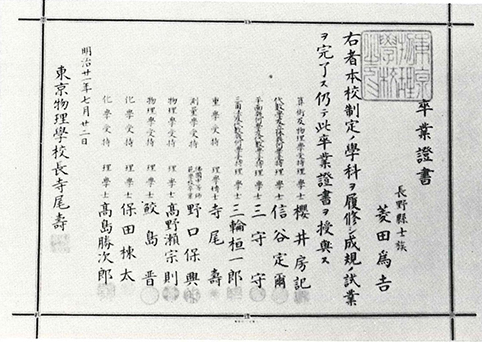 卒業證書
長野縣士族
菱田為吉
右者本校制定ノ學科ヲ履修シ成規ノ試業
ヲ完了ス仍テ此卒業證書ヲ授與ス
算術及物理學受持 理學士 櫻井房記
理學士 信谷定爾
理學士 三守守
理學士 三輪桓一郎
重學受持 理學博士 寺尾壽
測量學受持 野口保興
物理學受持 理學士 高野瀬宗則
物理學受持 理學士 鮫島晋
化學受持 理學士 保田棟太
化學受持 理學士 高島勝次郎
明治廿一年七月廿二日
東京物理學校長寺尾壽